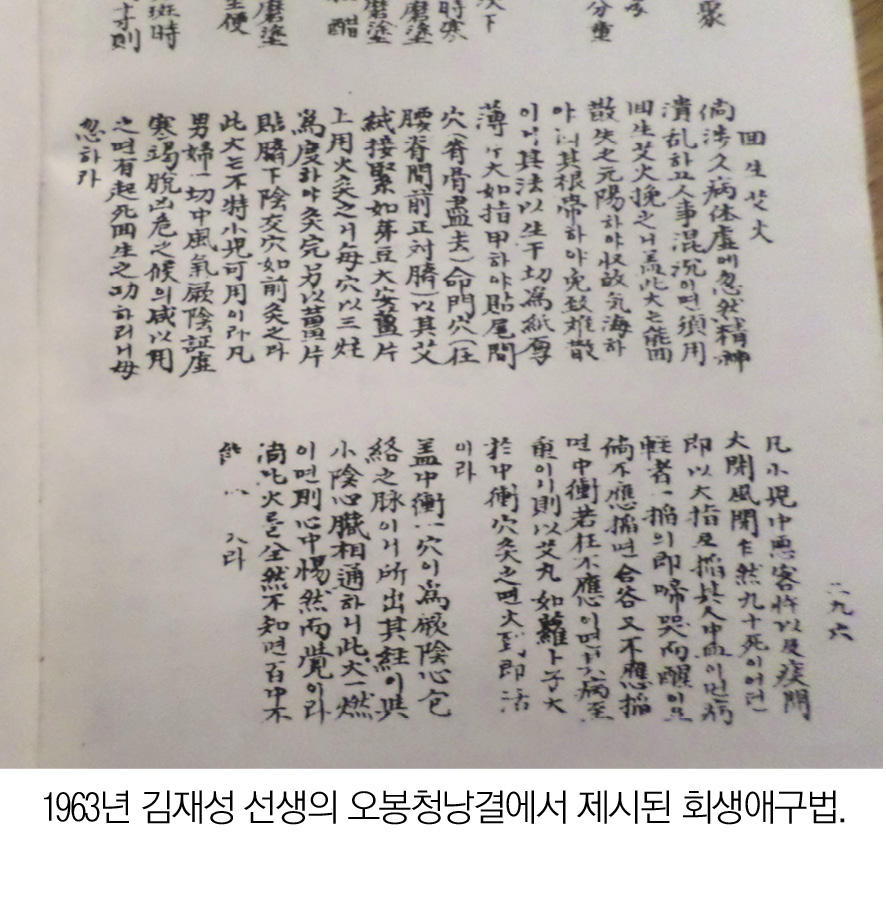 聚
分重
次下
時寒
磨塗
磨塗
醋
磨塗
生便
斑時
寸則
回生艾火
倘涉久病体虛에忽然精神
潰乱하고人事混沉이면須用
回生艾火挽之니盖此火는能回
散失之元陽하야収放気海하
야 其根蒂하야免致難散
이니其法以生干切爲紙厚
薄 大如指甲하야貼尾閭
穴(脊骨盡夫)命門穴(在
腰脊間前正対臍)以其艾
絨接緊如芽豆大安薑片
上用火灸之니每穴以三炷
爲度하야灸完另以薑片
貼臍下陰交穴如前灸之라
此火는不特小児可用이라凡
男婦一切中風氣厥陰証虛
寒竭脫凶危之候의咸以用
之면有起死回生之功하리니毋
忽하라
二九六
凡小児中悪客忤以及痰閉
火閉風閉乍然九十死이어던
即以大指 搯其人中 이면病
軽者一搯의即啼哭而醒이요
倘不應搯면合谷又不應搯
면中衝若在不應이면其病至
重이니則以艾丸如蘿卜子大
於中衝穴灸之면火到即活
이라
盖中衝一穴이爲厥陰心包
絡之脉이니所出其経이與
小陰心臟相通하니此火一燃
이면則心中惕然而覺이라
淌此火를全然不知면百中不
能 라
1963년 김재성 선생의 오봉청낭결에서 제시된 회생애구법.